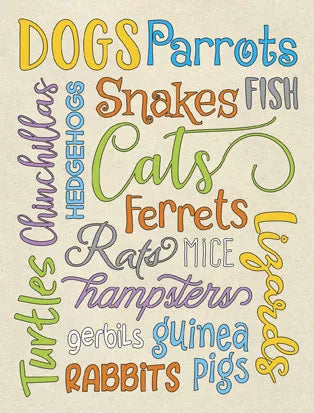 DOGS Parrots
Snakes FISH
Chinchillas
HEDGEHOGS
Cats
Ferrets
Rats MICE
Lizards
Turtles
hampsters
gerbils guinea
RABBITS pigs